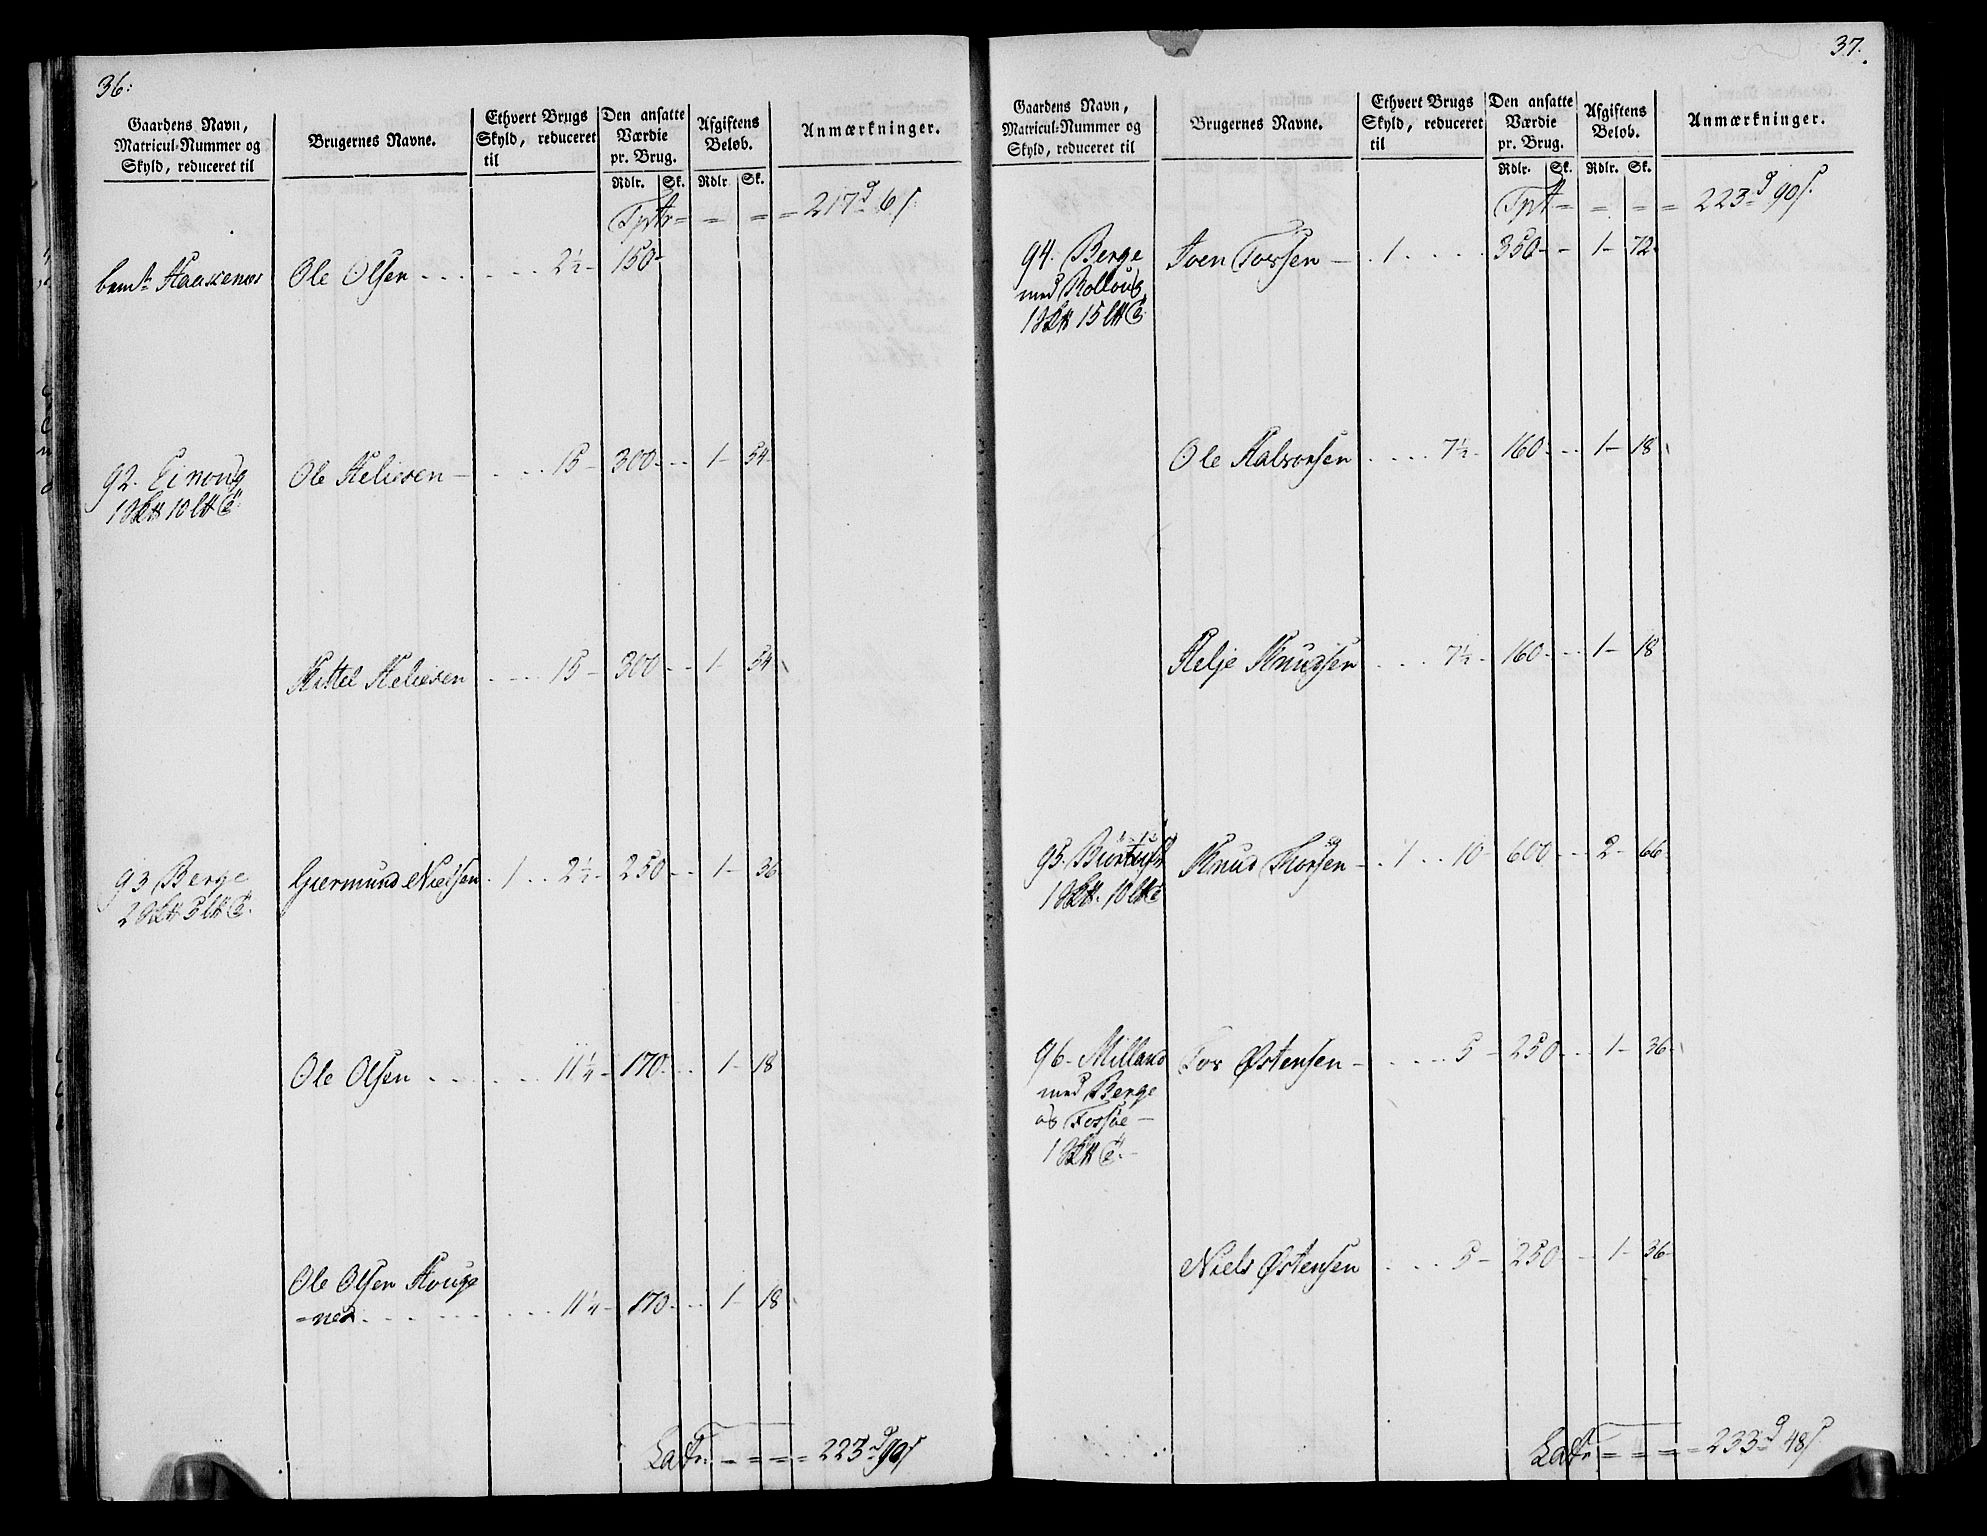 36:
Gaardens Navn, Matricul-Nummer og Skyld, reduceret til
Brugernes Navne.
Ethvert Brugs Skyld, reduceret til
Den ansatte Værdie pr. Brug.
Afgiftens Beløb.
Anmærkninger.
Rdlr. Sk. Rdlr Sk.
217 d 6 s
Ole Olsen 2½ 150
92. Ole 15 300 1 54
Kittel 15 300 1 54
93 Berge Giermund Nielsen 1 2½ 250 1 36
Ole Olsen 11¼ 170 1 18
Ole Olsen Houge
-ned 11¼ 170 1 18
Lat 223 d 90 s
37.
Gaardens Navn, Matricul-Nummer og Skyld, reduceret til
Brugernes Navne.
Ethvert Brugs Skyld, reduceret til
Den ansatte Værdie pr. Brug.
Afgiftens Beløb.
Anmærkninger.
Rdlr. Sk. Rdlr. Sk.
Tpt 223 d 90 s
94. Berge 1 350 1 72
med
Ole Halvorsen 7½ 160 1 18
Helje Knudsen 7½ 160 1 18
95. Knud Thorsen 1 10 600 2 66
96 Milland Tor Østensen 5 250 1 36
med Berge
og
Niels Østensen 5 250 1 36
Lat 233 d 48 s